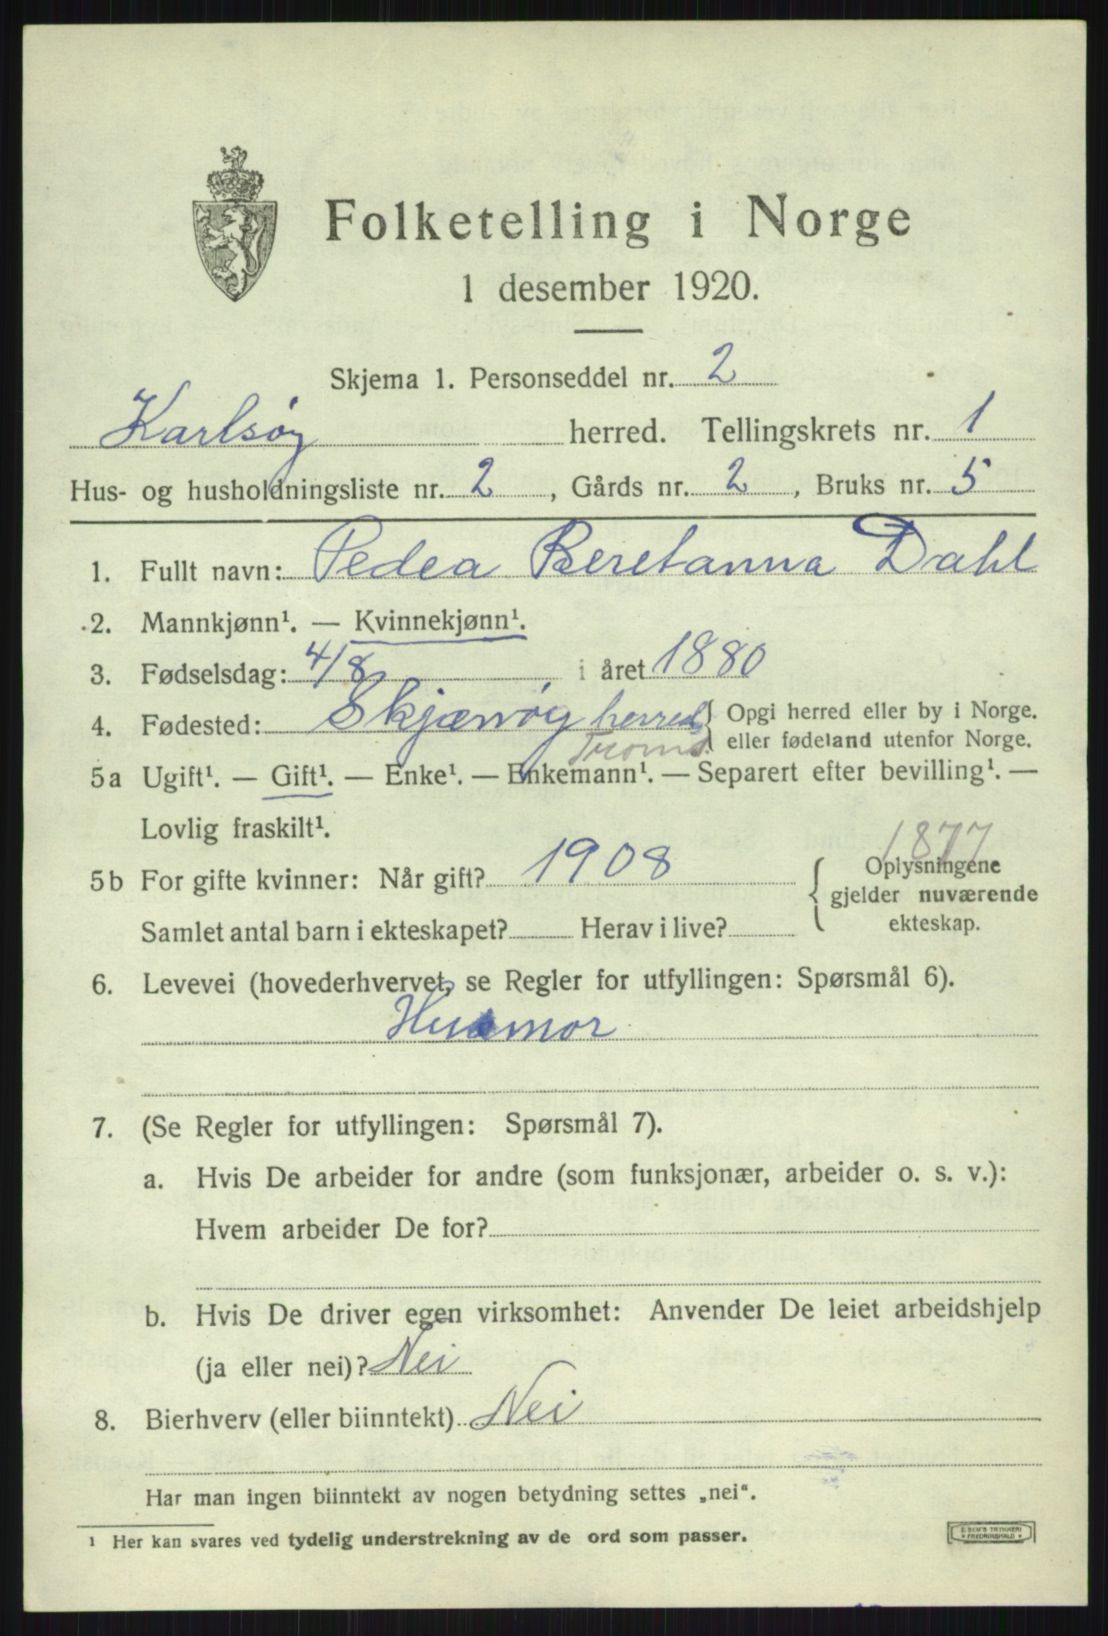 Folketelling i Norge
1 desember 1920.
Skjema 1. Personseddel nr. 2
Karlsøy herred. Tellingskrets nr. 1
Hus- og husholdningsliste nr. 2, Gårds nr. 2, Bruks nr. 5
1. Fullt navn: Pedea Beretanna Dahl
2. Mannkjønn¹. — Kvinnekjønn¹.
3. Fødselsdag: 4/8 i året 1880
4. Fødested: Skjærvøy herred { Opgi herred eller by i Norge.
Troms. eller fødeland utenfor Norge.
5a Ugift¹. — Gift¹. — Enke¹. — Enkemann¹. — Separert efter bevilling¹. —
Lovlig fraskilt¹.
1877
5b For gifte kvinner: Når gift? 1908 { Oplysningene
gjelder nuværende
Samlet antal barn i ekteskapet? Herav i live? ekteskap.
6. Levevei (hovederhvervet, se Regler for utfyllingen: Spørsmål 6).
Husmor
7. (Se Regler for utfyllingen: Spørsmål 7).
a. Hvis De arbeider for andre (som funksjonær, arbeider o. s. v.):
Hvem arbeider De for?
b. Hvis De driver egen virksomhet: Anvender De leiet arbeidshjelp
(ja eller nei)? Nei
8. Bierhverv (eller biinntekt) Nei
Har man ingen biinntekt av nogen betydning settes „nei".
¹ Her kan svares ved tydelig understrekning av de ord som passer.